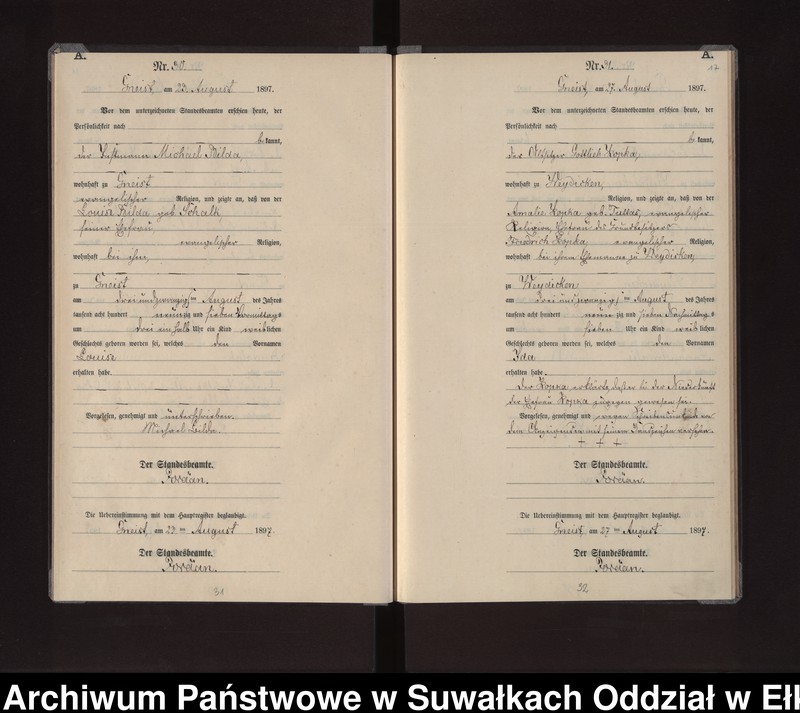 A.
Nr. 30.
Gneist am 23. August 1897.
Vor dem unterzeichneten Standesbeamten erschien heute, der
Persönlichkeit nach
bekannt,
der Michael Bilda,
wohnhaft zu Gneist
evangelischer Religion, und zeigte an, daß von der
Louise Bilda geb. Schalk
seiner Ehefrau
evangelischer Religion,
wohnhaft bei ihm
zu Gneist
am drei und zwanzigsten August des Jahres
tausend acht hundert neunzig und sieben Vormittags
um drei einhalb Uhr ein Kind weiblichen
Geschlechts geboren worden sei, welches den Vornamen
Louise
erhalten habe.
Vorgelesen, genehmigt und unterschrieben.
Michael Bilda.
Der Standesbeamte.
Jordan.
Die Uebereinstimmung mit dem Hauptregister beglaubigt.
Gneist am 23ten August 1897.
Der Standesbeamte.
Jordan.
31
A.
17
Nr. 31.
Gneist am 27. August 1897.
Vor dem unterzeichneten Standesbeamten erschien heute, der
Persönlichkeit nach
bekannt,
der Altsitzer Gottlieb Kopka,
wohnhaft zu Weydicken,
Religion, und zeigte an, daß von der
Amalie Kopka geb. evangelischer
Religion, Ehefrau des Grundbesitzers
Friedrich Kopka, evangelischer Religion,
wohnhaft bei ihrem Ehemanne zu Weydicken,
zu Weydicken
am drei und zwanzigsten August des Jahres
tausend acht hundert neunzig und sieben Nachmittags
um sieben Uhr ein Kind weiblichen
Geschlechts geboren worden sei, welches den Vornamen
Ida
erhalten habe.
Der Kopka erklärte, daß er bei der Niederkunft
der Ehefrau Kopka zugegen gewesen sei.
Vorgelesen, genehmigt und wegen Schreibensunkunde von
dem Anzeigenden mit seinem Handzeichen versehen.
+ + +
Der Standesbeamte.
Jordan.
Die Uebereinstimmung mit dem Hauptregister beglaubigt.
Gneist am 27ten August 1897.
Der Standesbeamte.
Jordan.
32
Archiwum Państwowe w Suwałkach Oddział w Ełk